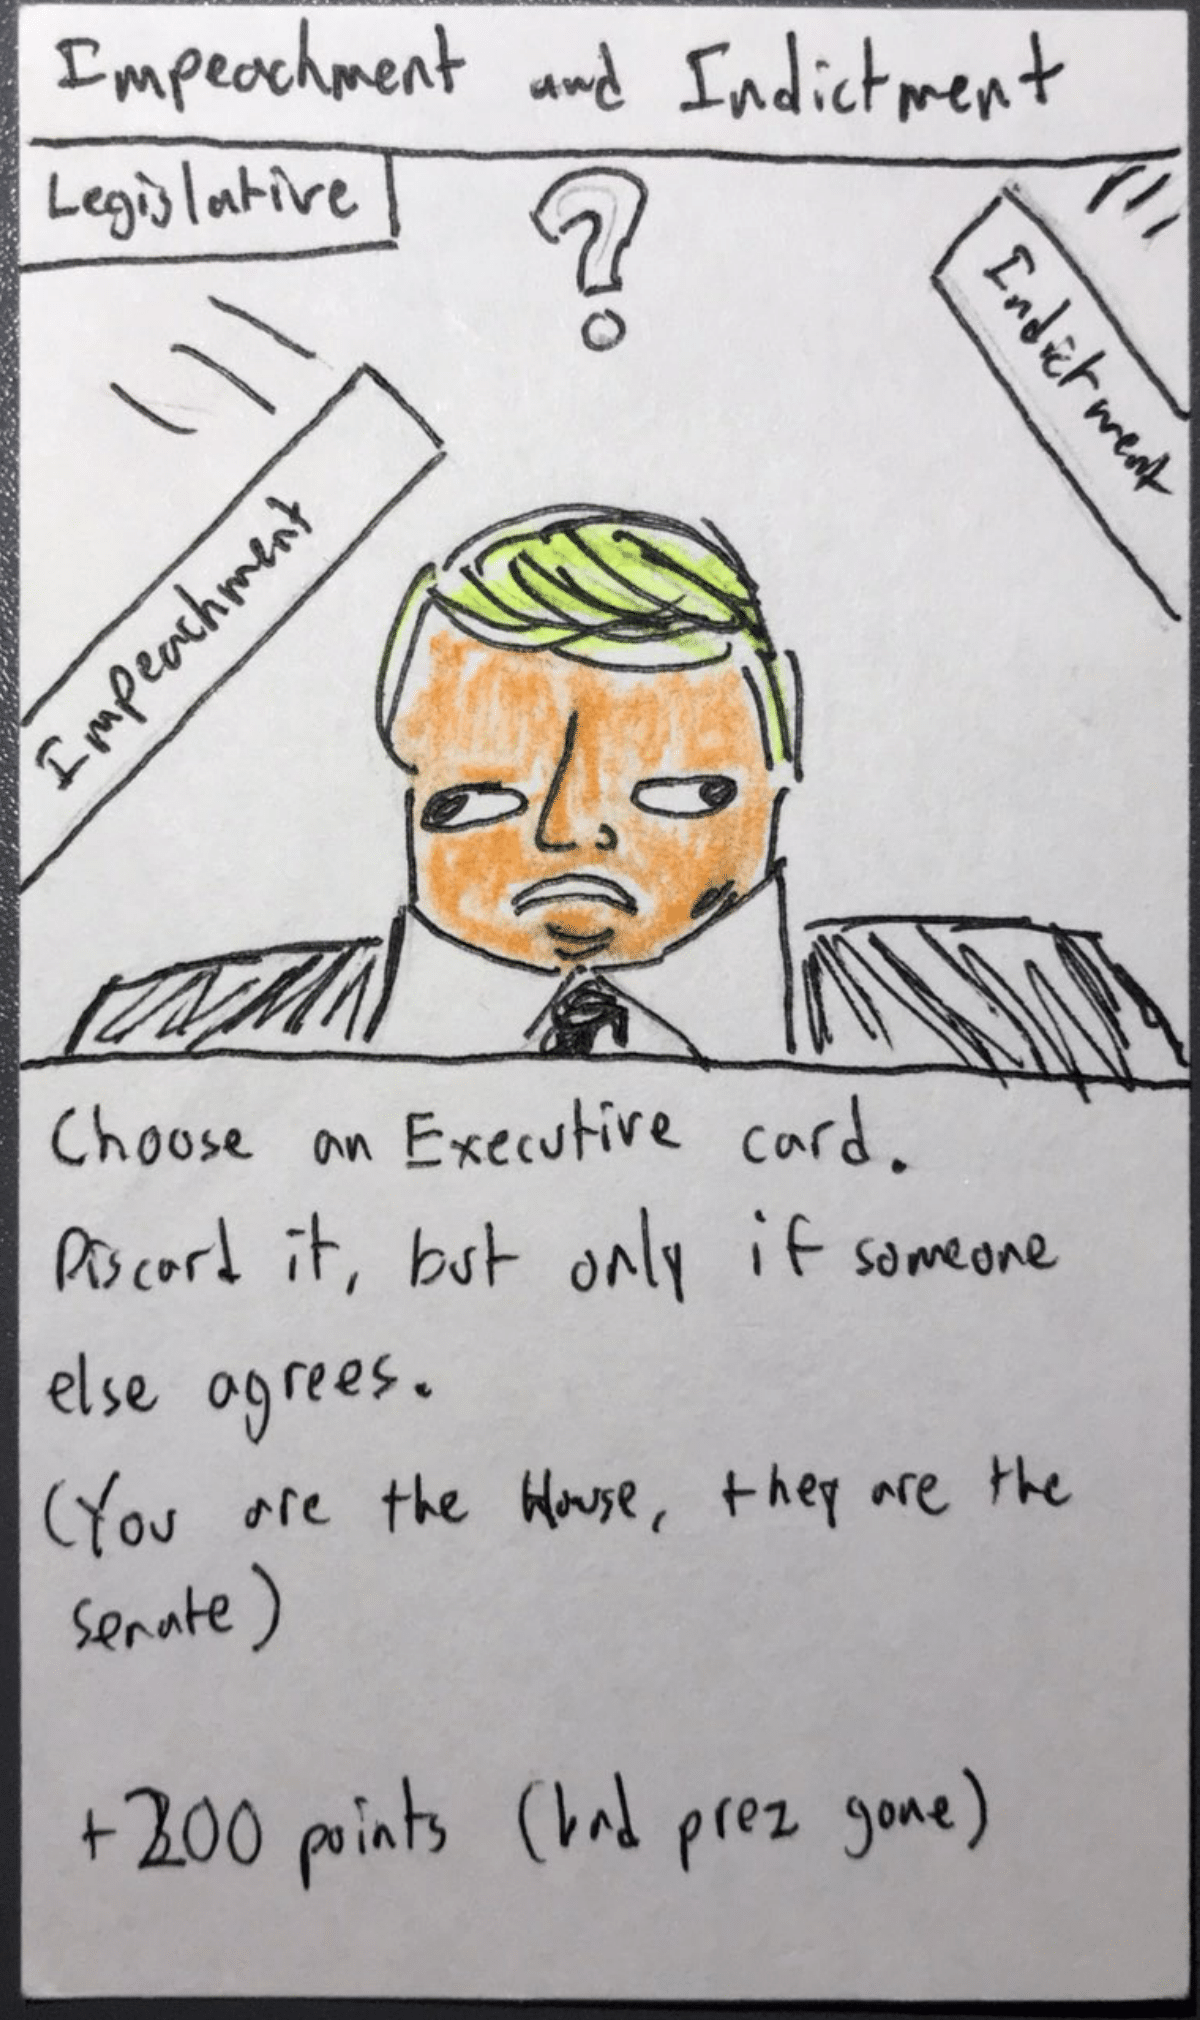 Impeachment and Indictment
Legislative
?
Indictment
Impeachment
Choose an Executive card.
Discard it, but only if someone
else agrees.
(You are the House, they are the
senate)
+200 points (bad prez gone)